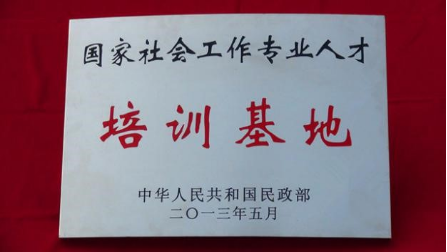 国家社会工作专业人才
培训基地
中华人民共和国民政部
二〇一三年五月